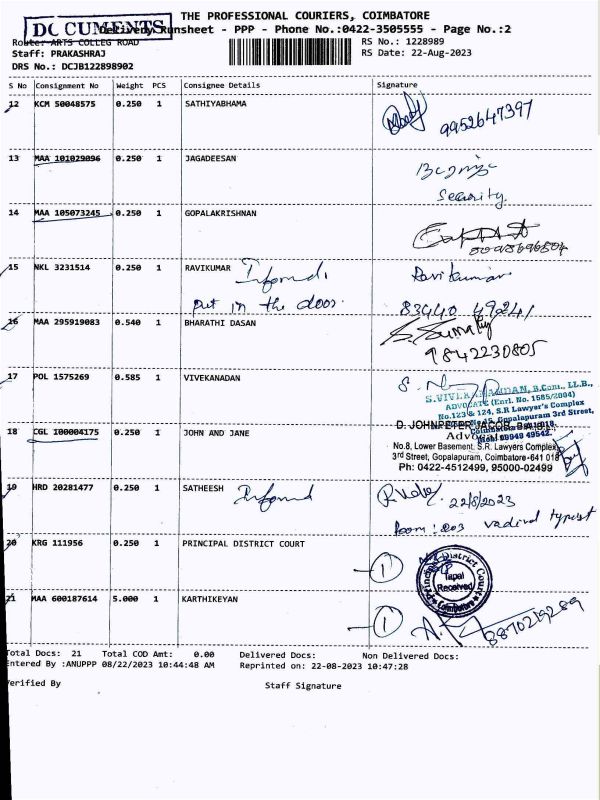 THE PROFESSIONAL COURIERS, COIMBATORE
DOCUMENTS
Delivery Runsheet - PPP - Phone No.:0422-3505555 - Page No.:2
Route: ARTS COLLEG ROAD
RS No.: 1228989
Staff: PRAKASHRAJ
RS Date: 22-Aug-2023
DRS No.: DCJB122898902
S No Consignment No Weight PCS Consignee Details Signature
12 KCM 50048575 0.250 1 SATHIYABHAMA
9952647397
13 MAA 101029096 0.250 1 JAGADEESAN
Security.
14 MAA 105073245 0.250 1 GOPALAKRISHNAN
15 NKL 3231514 0.250 1 RAVIKUMAR Informed. Ravikumar
put in the door. 83440 49241
16 MAA 295919083 0.540 1 BHARATHI DASAN
9842230805
17 POL 1575269 0.585 1 VIVEKANADAN
S.VIVEKANANDAN, B.Com., LL.B.,
ADVOCATE (Enrl. No. 1585/2004)
No.123 & 124, S.R Lawyer's Complex
Gopalapuram 3rd Street,
18 CGL 100004175 0.250 1 JOHN AND JANE
D. JOHNPETER JACOB
Advocate
No.8, Lower Basement, S.R. Lawyers Complex,
3rd Street, Gopalapuram, Coimbatore-641 018
Ph: 0422-4512499, 95000-02499
19 HRD 20281477 0.250 1 SATHEESH Informed
22/8/2023
Room : 203
typist
20 KRG 111956 0.250 1 PRINCIPAL DISTRICT COURT
1
Principal District Court
Tapal
Received
Coimbatore
21 MAA 600187614 5.000 1 KARTHIKEYAN
1
8870219289
Total Docs: 21 Total COD Amt: 0.00 Delivered Docs: Non Delivered Docs:
Entered By :ANUPPP 08/22/2023 10:44:48 AM Reprinted on: 22-08-2023 10:47:28
Verified By Staff Signature